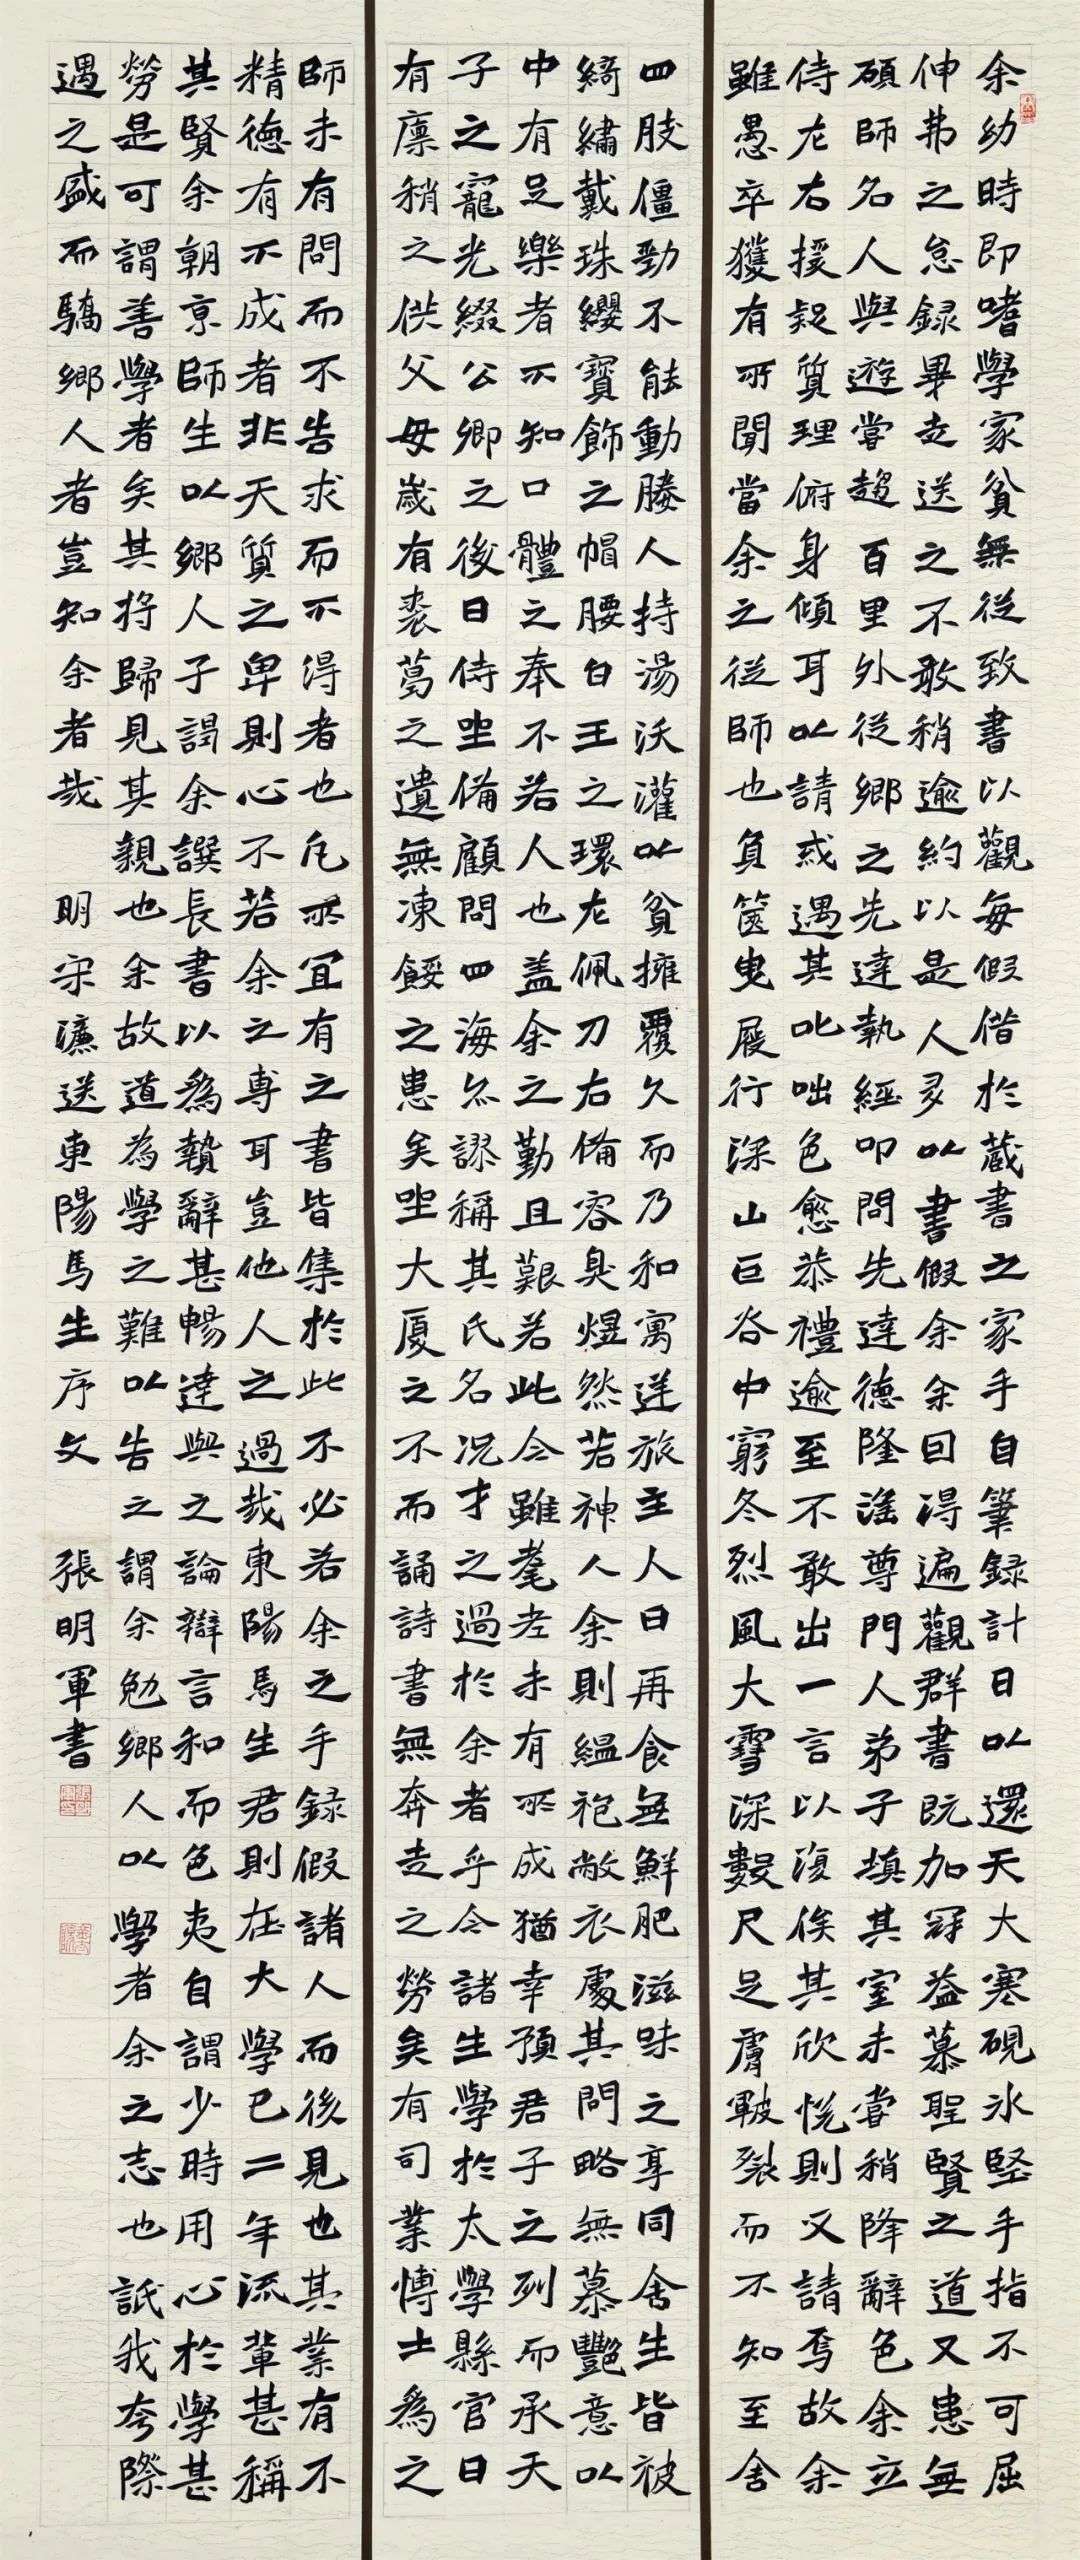 余幼時即嗜學家貧無從致書以觀每假借於藏書之家手自筆錄計日以還天大寒硯冰堅手指不可屈
伸弗之怠錄畢走送之不敢稍逾約以是人多以書假余余因得遍觀群書既加冠益慕聖賢之道又患無
碩師名人與遊嘗趨百里外從鄉之先達執經叩問先達德隆望尊門人弟子填其室未嘗稍降辭色余立
侍左右援疑質理俯身傾耳以請或遇其叱咄色愈恭禮逾至不敢出一言以復俟其欣悅則又請焉故余
雖愚卒獲有所聞當余之從師也負篋曳屣行深山巨谷中窮冬烈風大雪深數尺足膚皸裂而不知至舍
四肢僵勁不能動媵人持湯沃灌以衾擁覆久而乃和寓逆旅主人日再食無鮮肥滋味之享同舍生皆被
綺繡戴珠纓寶飾之帽腰白玉之環左佩刀右備容臭煜然若神人余則縕袍敝衣處其間略無慕豔意以
中有足樂者不知口體之奉不若人也蓋余之勤且艱若此今雖耄老未有所成猶幸預君子之列而承天
子之寵光綴公卿之後日侍坐備顧問四海亦謬稱其氏名況才之過於余者乎今諸生學於太學縣官日
有廩稍之供父母歲有裘葛之遺無凍餒之患矣坐大廈之不而誦詩書無奔走之勞矣有司業博士為之
師未有問而不告求而不得者也凡所宜有之書皆集於此不必若余之手錄假諸人而後見也其業有不
精德有不成者非天質之卑則心不若余之專耳豈他人之過哉東陽馬生君則在大學已二年流輩甚稱
其賢余朝京師生以鄉人子謁余譔長書以為贄辭甚暢達與之論辯言和而色夷自謂少時用心於學甚
勞是可謂善學者矣其將歸見其親也余故道為學之難以告之謂余勉鄉人以學者余之志也詆我夸際
遇之盛而驕鄉人者豈知余者哉 明宋濂送東陽馬生序文 張明軍書